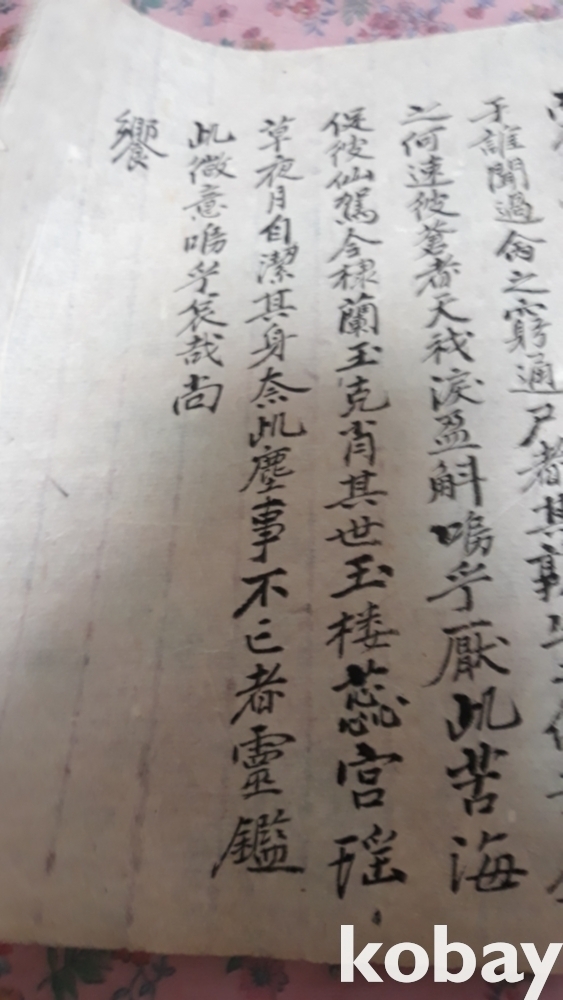 于誰聞過命之窮通尸者其孰
之何逮彼蒼者天我淚盈斛嗚乎厭此苦海
促彼仙駕令棣蘭玉克肖其世玉楼蕊宮瑶
草夜月自潔其身奈此塵事不亡者靈鑑
此微意嗚乎哀哉尚
饗
kobay